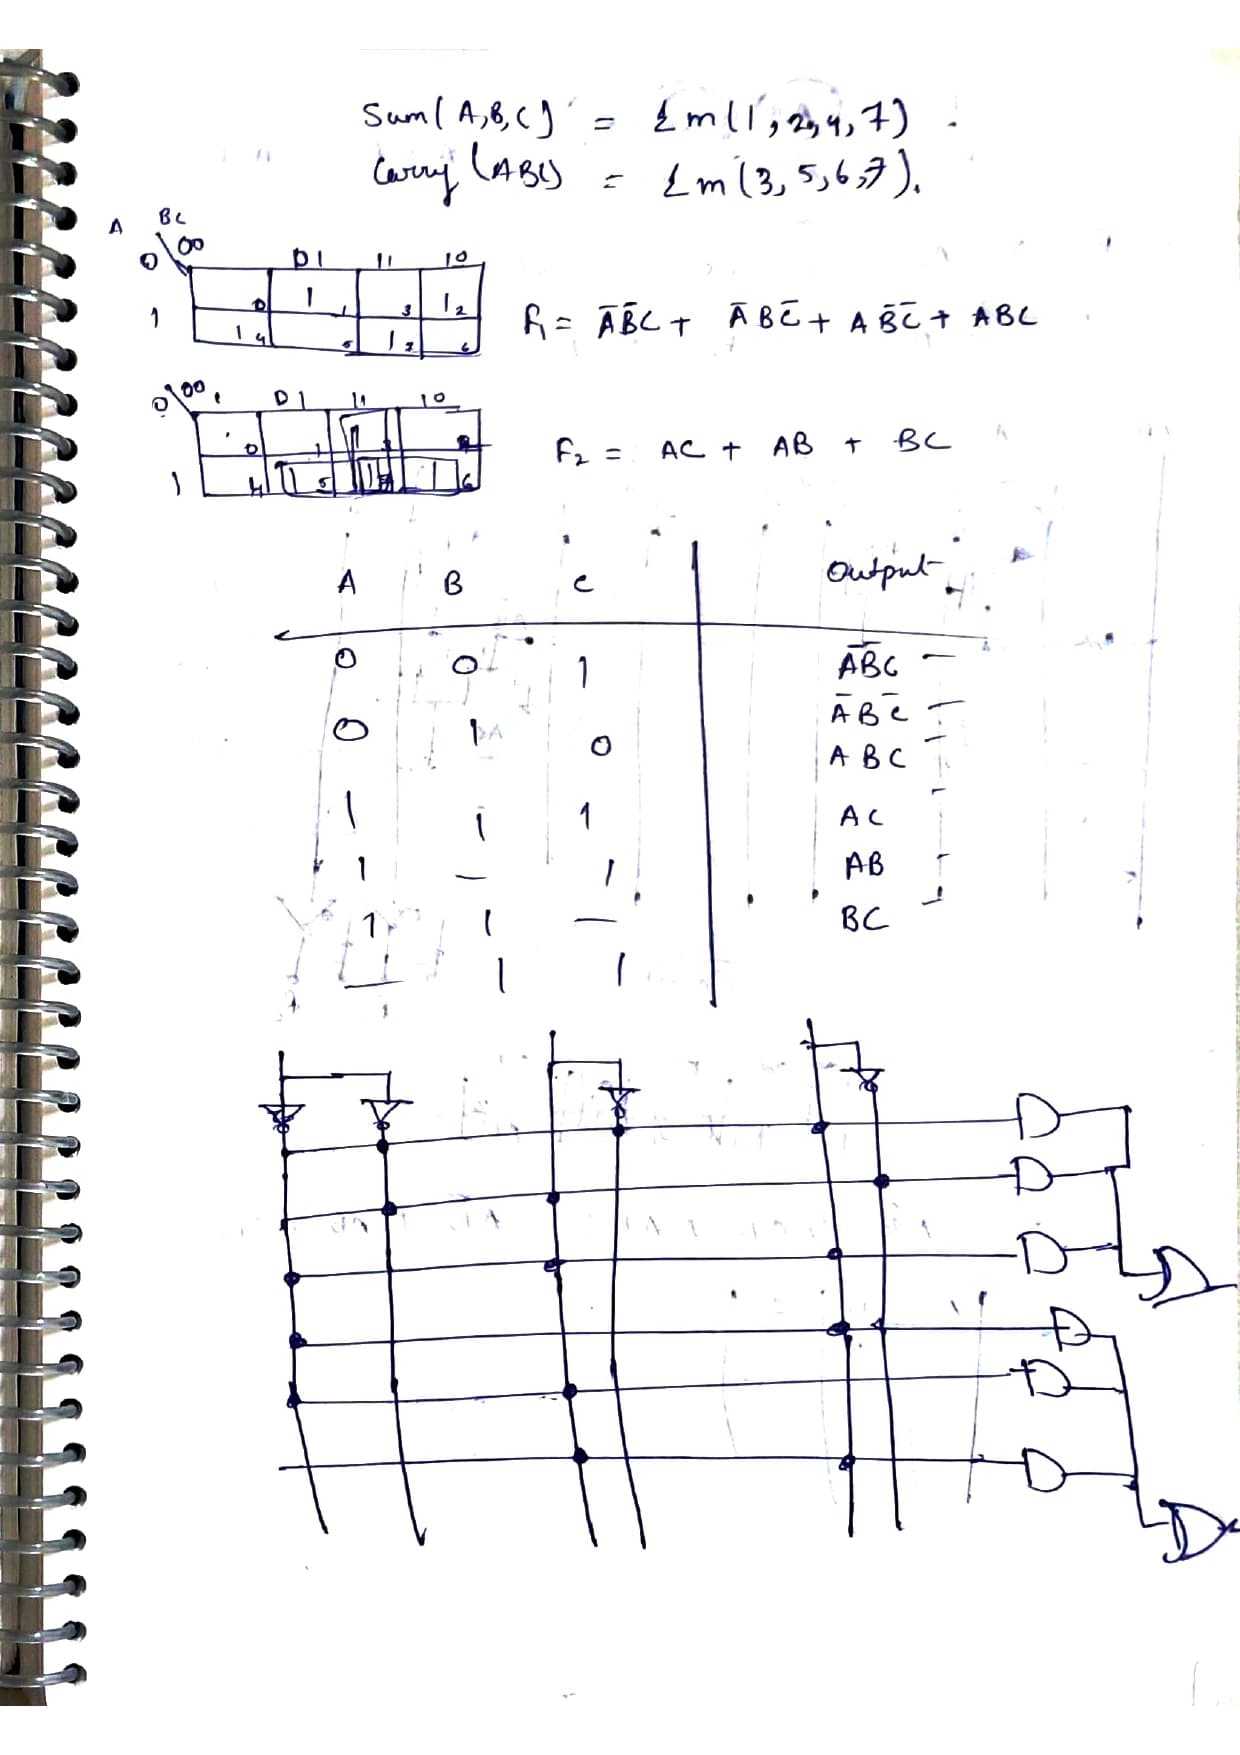 Sum(A,B,C) = Σm(1,2,4,7).
Carry(ABC) = Σm(3,5,6,7).
A BC
0 00 01 11 10
0 1 1 3 1 2
1 1 4 5 1 7 6
F1 = A̅B̅C + A̅BC̅ + AB̅C̅ + ABC
0 00 01 11 10
0 1 1 3 2
1 4 1 5 1 7 1 6
F2 = AC + AB + BC
A B C Output
0 0 1 A̅B̅C –
0 1 0 A̅BC̅ –
1 1 1 ABC –
1 – 1 AC –
1 1 – AB –
– 1 1 BC –